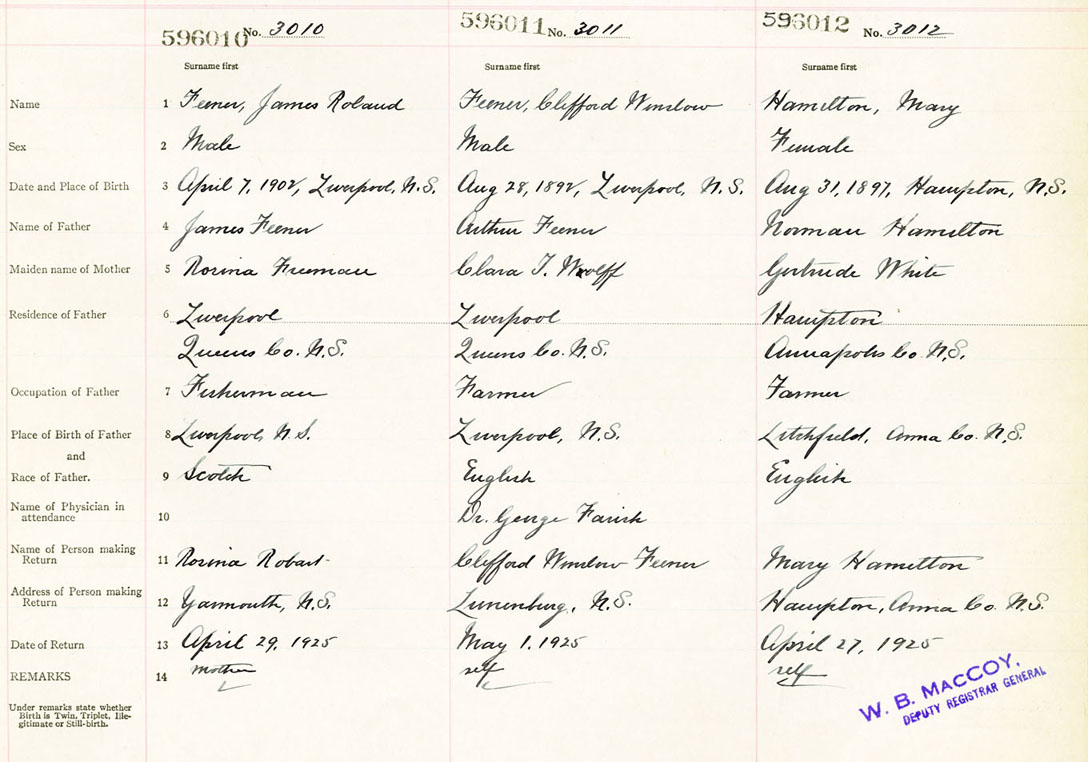 596010 No. 3010 596011 No. 3011 596012 No. 3012
Surname first Surname first Surname first
Name 1 Feener, James Roland Feener, Clifford Winslow Hamilton, Mary
Sex 2 Male Male Female
Date and Place of Birth 3 April 7, 1902, Liverpool, N.S. Aug 28, 1892, Liverpool, N.S. Aug 31, 1897, Hampton, N.S.
Name of Father 4 James Feener Arthur Feener Norman Hamilton
Maiden name of Mother 5 Rosina Freeman Clara T. Woolff Gertrude White
Residence of Father 6 Liverpool Liverpool Hampton
Queens Co. N.S. Queens Co. N.S. Annapolis Co. N.S.
Occupation of Father 7 Fisherman Farmer Farmer
Place of Birth of Father 8 Liverpool, N.S. Liverpool, N.S. Litchfield, Anna Co. N.S.
and
Race of Father. 9 Scotch English English
Name of Physician in
attendance 10 Dr. George Farish
Name of Person making
Return 11 Rosina Robart Clifford Winslow Feener Mary Hamilton
Address of Person making
Return 12 Yarmouth, N.S. Lunenburg, N.S. Hampton, Anna Co. N.S.
Date of Return 13 April 29, 1925 May 1, 1925 April 27, 1925
REMARKS 14 mother self self
Under remarks state whether
Birth is Twin, Triplet, Ille-
gitimate or Still-birth.
W. B. MACCOY,
DEPUTY REGISTRAR GENERAL